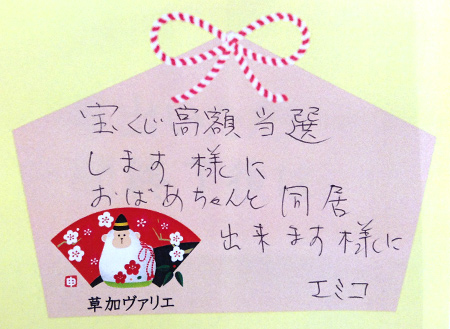 宝くじ高額当選
します様に
おばあちゃんと同居
出来ます様に
エミコ
申
草加ヴァリエ